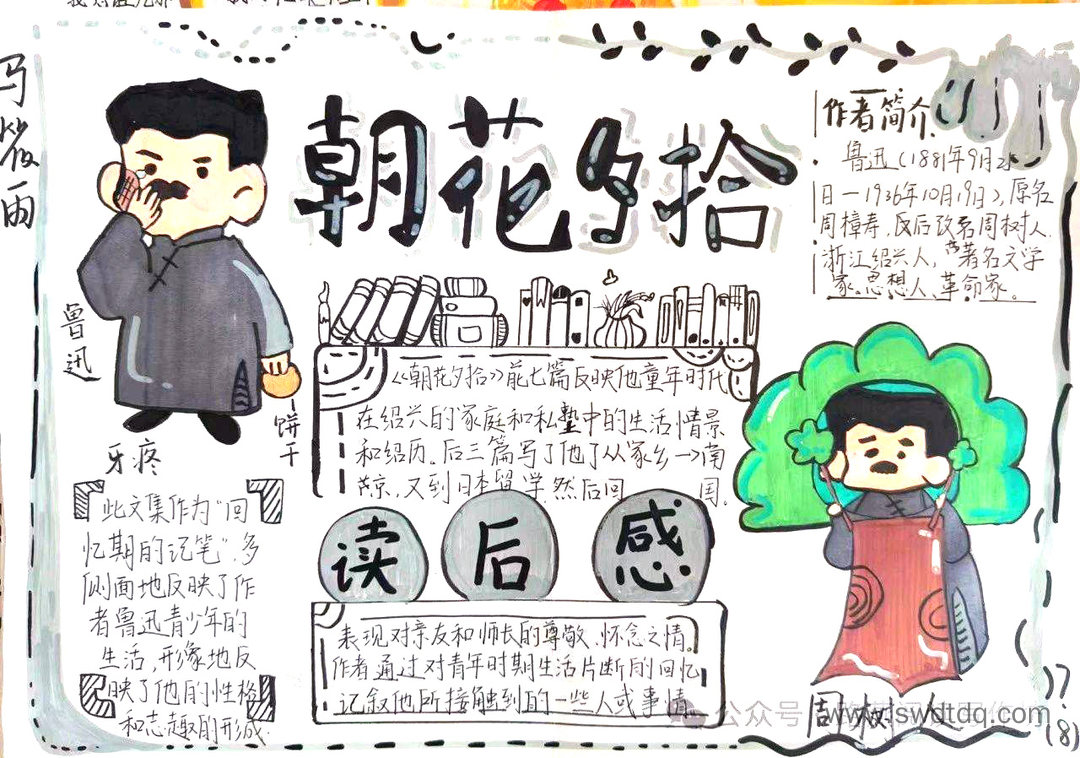 马筱雨
朝花夕拾
作者简介
鲁迅(1881年9月25
日—1936年10月19日),原名
周樟寿,后改名周树人.
浙江绍兴人,著名文学
家.思想人.革命家。
鲁迅
饼干
牙疼
《朝花夕拾》前七篇反映他童年时代
在绍兴的家庭和私塾中的生活情景
和绍历.后三篇写了他了从家乡→南
京,又到日本留学,然后回 国.
读后感
此文集作为“回
忆期的记笔”,多
侧面地反映了作
者鲁迅青少年的
生活,形象地反
映了他的性格
和志趣的形成.
表现对亲友和师长的尊敬、怀念之情.
作者通过对青年时期生活片断的回忆
记叙他所接触到的一些人或事情
周树人
17
(8)
公众号
www.jswdtdq.com